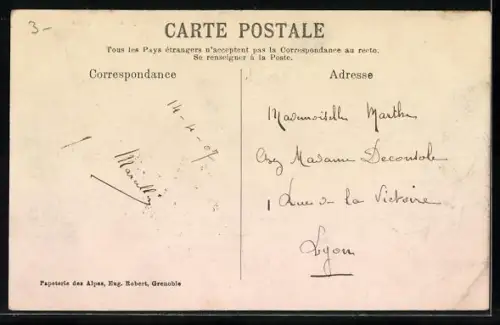 3-
CARTE POSTALE
Tous les Pays étrangers n'acceptent pas la Correspondance au recto.
Se renseigner à la Poste.
Correspondance
Adresse
14-4-07
Mademoiselle Marthe
Chez Madame Decontole
1 Rue de la Victoire
Lyon
Papeterie des Alpes, Eug. Robert, Grenoble